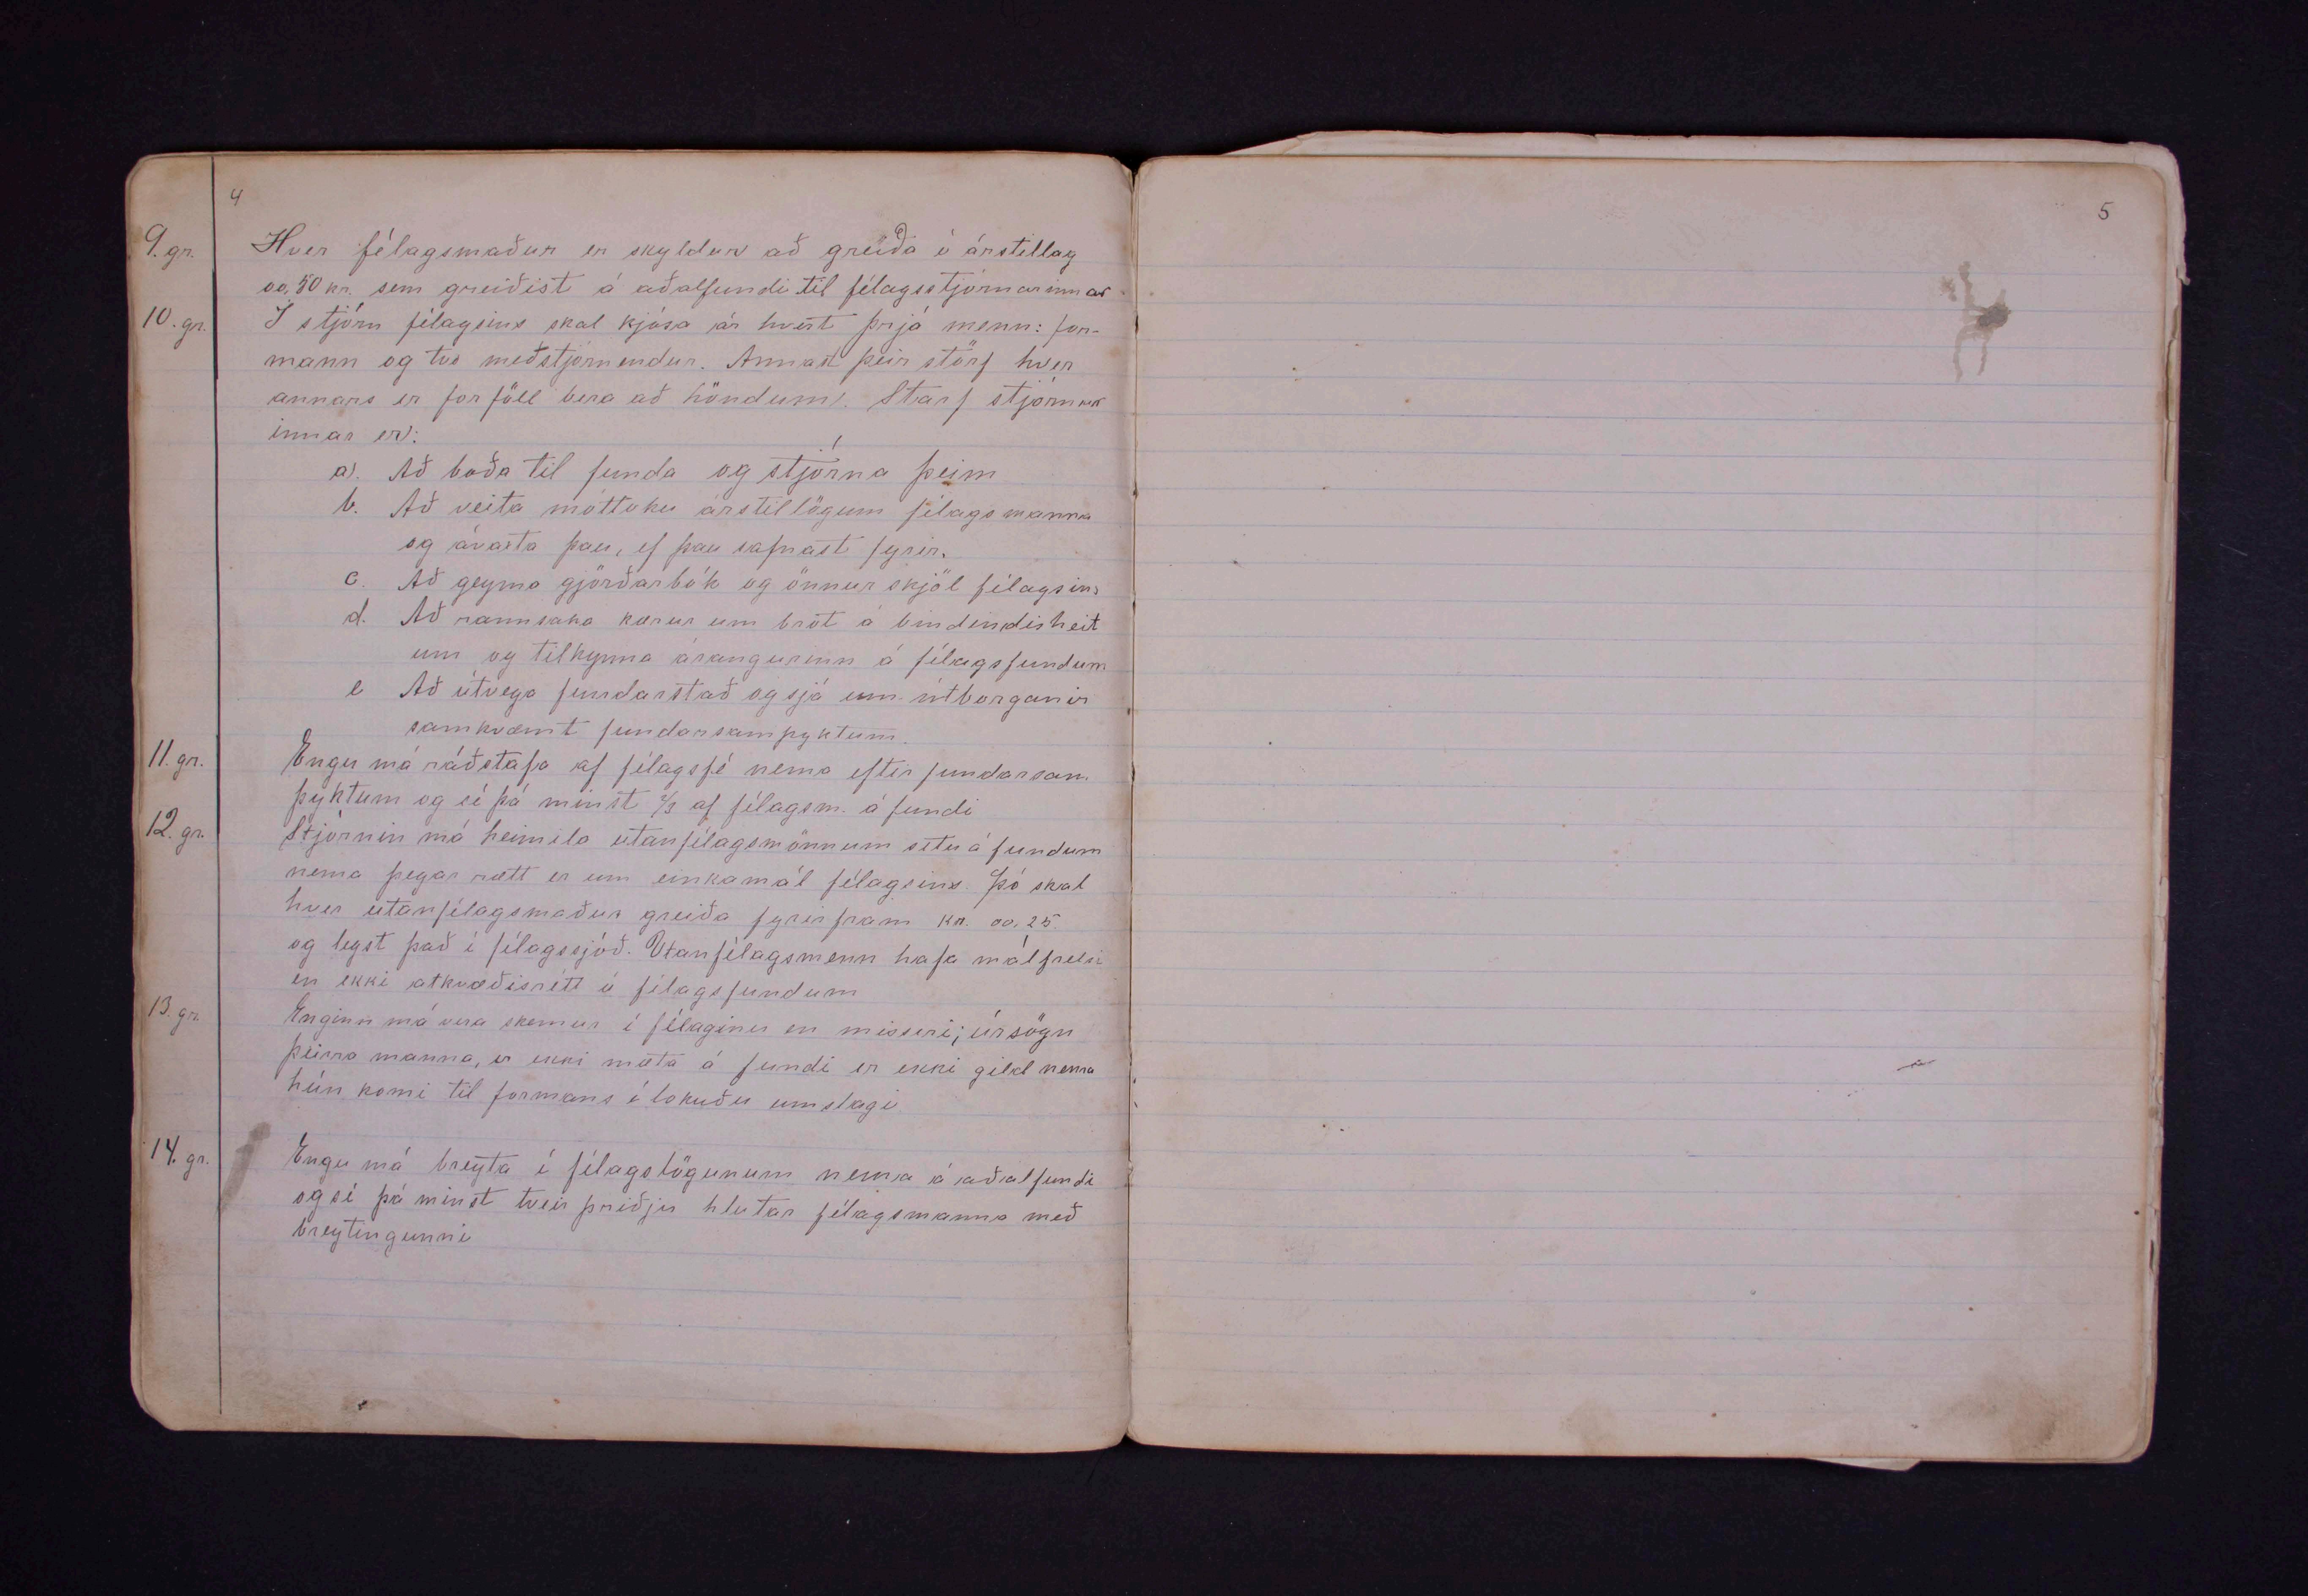 4
9. gr. Hver félagsmaður er skyldur að greiða í árstillag
00,50 kr. sem greiðist á aðalfundi til félagsstjórnarinnar
10. gr. Í stjórn félagsins skal kjósa ár hvert þrjá menn: for-
mann og tvo meðstjórnendur. Annast þeir störf hver
annars er forföll bera að höndum. Starf stjórnar
innar er:
a). Að boða til funda og stjórna þeim
b. Að veita móttöku árstillögum félagsmanna
og ávaxta þau, ef þau safnast fyrir.
c. Að geyma gjörðarbók og önnur skjöl félagsins
d. Að rannsaka kærur um brot á bindindisheit
um og tilkynna árangurinn á félagsfundum
e Að útvega fundarstað og sjá um útborganir
samkvæmt fundarsamþyktum.
11. gr. Engu má ráðstafa af félagsfé nema eftir fundarsam.
þyktum og sé þá minst 2/3 af félagsm. á fundi
12. gr. Stjórnin má heimila utanfélagsmönnum setu á fundum
nema þegar rætt er um einkamál félagsins. Þó skal
hver utanfélagsmaður greiða fyrirfram kr. 00,25
og legst það í félagssjóð. Utanfélagsmenn hafa málfrelsi
en ekki atkvæðisrétt á félagsfundum
13. gr. Enginn má vera skemur í félaginu en misseri; úrsögn
þeirra manna, er ekki mæta á fundi er ekki gild nema
hún komi til formans í lokuðu umslagi
14. gr. Engu má breyta í félagslögunum nema á aðalfundi
og sé þá minst tveir þriðju hlutar félagsmanna með
breytingunni
5